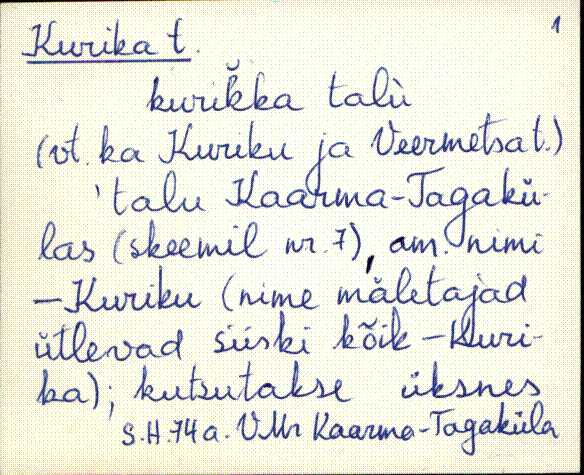 1
Kurika t.
kurik̆ka talù
(vt. ka Kuriku ja Veermetsa t.)
'talu Kaarma-Tagakü-
las (skeemil nr. 7), am. nimi
-Kuriku (nime mäletajad
ütlevad siiski kõik -Kuri-
ka); kutsutakse üksnes
S.H. 74 a. VMr Kaarma-Tagaküla